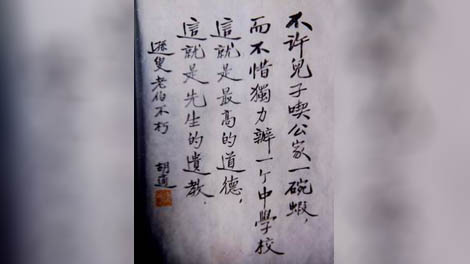 不许兒子喫公家一碗蝦，
而不惜獨力辦一个中學校
這就是最高的道德，
這就是先生的遺教．
孫叟老伯不朽　胡適